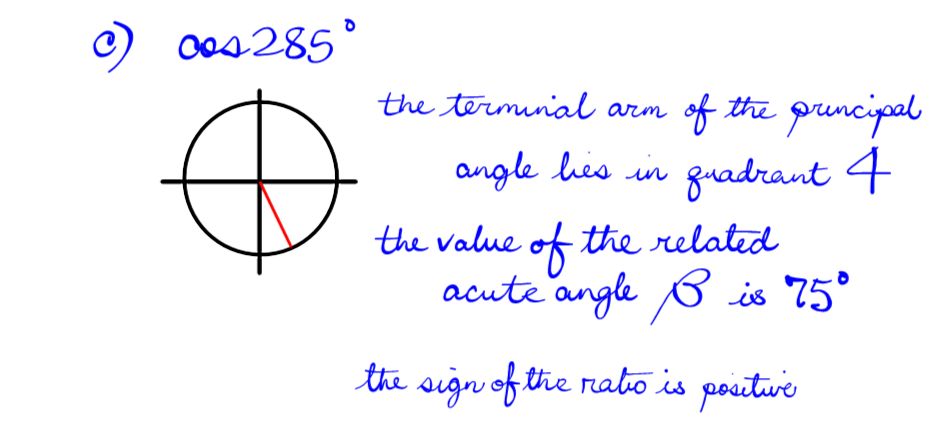 c) cos 285°
the terminal arm of the principal
angle lies in quadrant 4
the value of the related
acute angle β is 75°
the sign of the ratio is positive